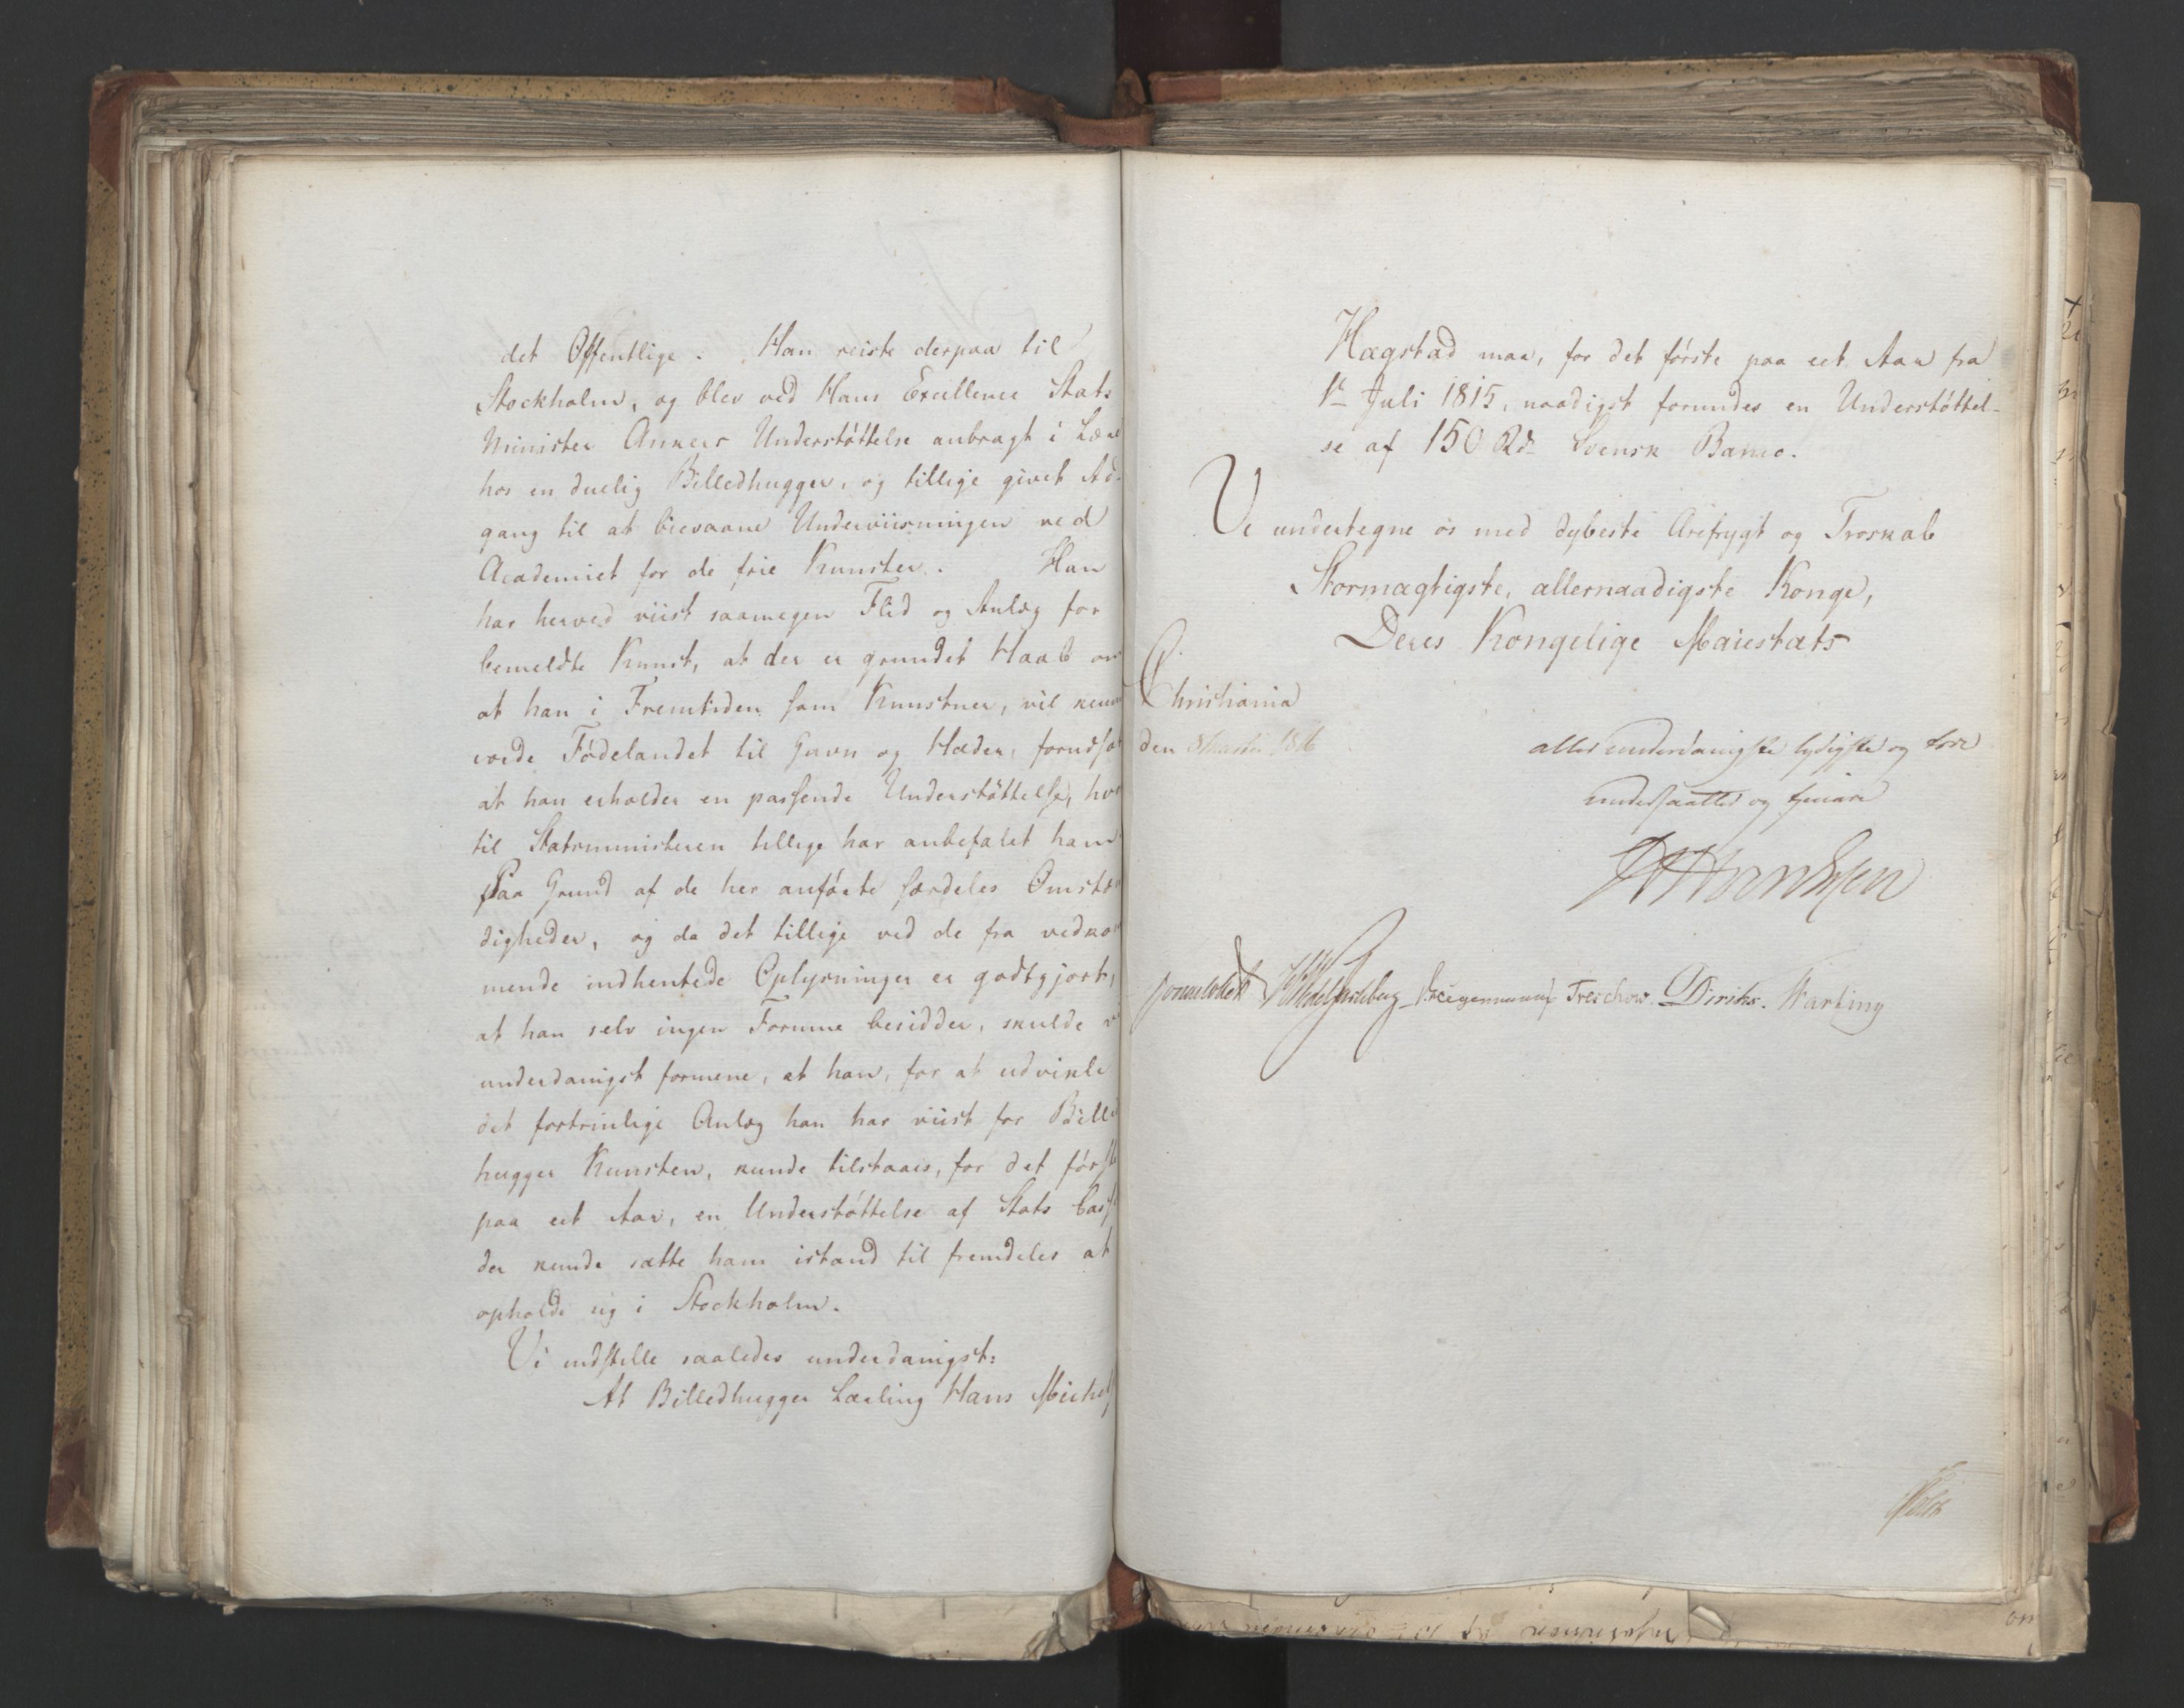 det Offentlige. Han reiste derpaa til
Stockholm, og blev ved Hans Excellence Stats
Minister Ankers Understøttelse anbragt i Lære
hos en duelig Billedhugger, og tillige givet Ad-
gang til at bievaane Underviisningen ved
Academiet for de frie Kunster. Han
har herved viist saamegen Flid og Anlæg for
bemeldte Kunst, at der er grundet Haab om
at han i Fremtiden som Kunstner, vil kunne
vorde Fødelandet til Gavn og Hæder, forudsat
at han erholder en passende Understøttelse, hvor
til Statsministeren tillige har anbefalet ham
Paa Grund af de her anførte særdeles Omstæn
digheder, og da det tillige ved de fra vedkom
mende indhentede Oplysninger er godtgjort,
at han selv ingen Formue besidder, skulde vi
underdanigst formene, at han, for at udvikle
det fortrinlige Anlæg han har viist for Billed
hugger Kunsten, kunde tilstaaes, for det første
paa eet Aar, en Understøttelse af Stats Cassen
der kunde sætte ham istand til fremdeles at
opholde sig i Stockholm.
Vi indstille saaledes underdanigst:
At Billedhugger Lærling Hans Michels
Hægstad maa, for det første paa eet Aar fra
1te Juli 1815, naadigst forundes en Understøttel-
se af 150 Rd. Svensk Banco.
Vi undertegne os med dybeste Ærefrygt og Troskab
Stormægtigste, allernaadigste Konge,
Deres Kongelige Maiestæts
Christiania
den 1816
allerunderdanigste lydigste og troe
undersaatter og tjenere
Sommerhielm Wedel Jarlsberg Krieg Treschow. Diriks. Hartung